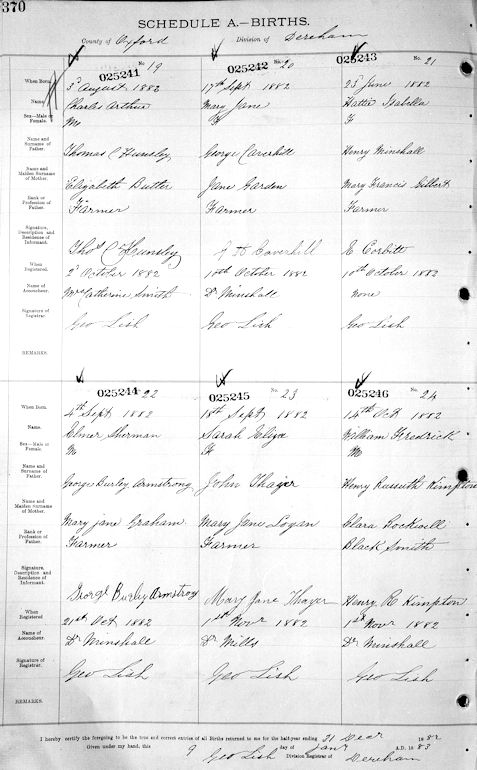 370
SCHEDULE A.—BIRTHS.
County of Oxford Division of Dereham
025241 No 19 025242 No 20 025243 No. 21
When Born. 3d August 1882 17th Sept 1882 25 June 1882
Name. Charles Arthur Mary Jane Hattie Isabella
Sex—Male or Female. M F F
Name and Surname of Father. Thomas C Hunsley George Caverhill Henry Minshall
Name and Maiden Surname of Mother. Elizabeth Butler Jane Garden Mary Francis Gilbert
Rank or Profession of Father. Farmer Farmer Farmer
Signature, Description and Residence of Informant. Thos C Hunsley Caverhill E Corbitt
When Registered. 2d October 1882 10th October 1882 10th October 1882
Name of Accoucheur. Mrs Catherine Smith Dr Minshall none
Signature of Registrar. Geo Lish Geo Lish Geo Lish
REMARKS.
025244 22 025245 No. 23 025246 No. 24
When Born. 4th Sept 1882 18th Sept 1882 14th Oct 1882
Name. Elmer Sherman Sarah Eliza William Fredrick
Sex—Male or Female. M F M
Name and Surname of Father. George Burley Armstrong John Thayer Henry Russuth Kimpton
Name and Maiden Surname of Mother. Mary jane Graham Mary Jane Logan Clara Rockwell
Rank or Profession of Father. Farmer Farmer Black Smith
Signature, Description and Residence of Informant. George Burley Armstrong Mary Jane Thayer Henry R Kimpton
When Registered 21st Oct 1882 1st Novr 1882 1st Novr 1882
Name of Accoucheur. Dr Minshall Dr Mills Dr Minshall
Signature of Registrar. Geo Lish Geo Lish Geo Lish
REMARKS.
I hereby certify the foregoing to be the true and correct entries of all Births returned to me for the half-year ending 31 Decr 1882
Given under my hand, this 9 day of Jany A.D. 1883
Geo Lish Division Registrar of Dereham